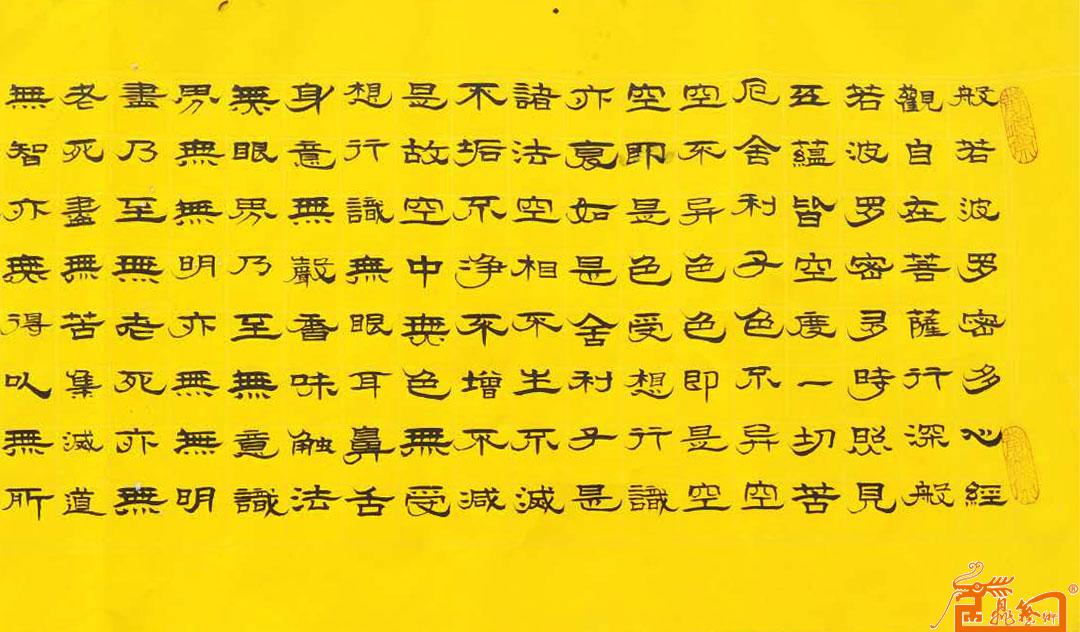 般若波罗密多心經
觀自在菩薩行深般
若波罗密多時照見
五蘊皆空度一切苦
厄舍利子色不异空
空不异色色即是空
空即是色受想行識
亦复如是舍利子是
諸法空相不生不滅
不垢不净不增不减
是故空中無色無受
想行識無眼耳鼻舌
身意無聲香味触法
無眼界乃至無意識
界無無明亦無無明
盡乃至無老死亦無
老死盡無苦集滅道
無智亦無得以無所